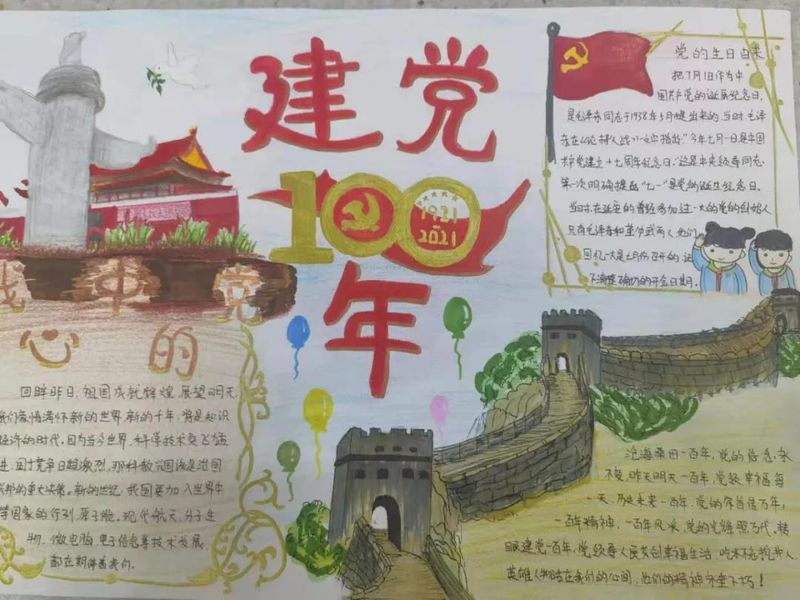 建党
100
1921
2021
年
党的生日由来
把7月1日作为中
国共产党的诞辰纪念日,
是毛泽东同志于1938年5月提出来的。当时,毛泽
东在《论持久战》一文中指出:"今年七月一日是中国
共产党建立十七周年纪念日",这是中央领导同志
第一次明确提出"七一"是党的诞生纪念日。
当时,在延安的曾经参加过一大的党的创始人
只有毛泽东和董必武两人,他们
回忆一大是七月份召开的,
中党
心的
回眸昨日,祖国成就辉煌,展望明天,
我们豪情满怀,新的世界,新的千年,将是知识
经济的时代,因为当今世界,科学技术突飞猛
进,国力竞争日趋激烈,
新的世纪,我国更加入世界中
国家的行列,原子能,现代航天,分子生
物,微电脑,电子信息等技术发展,
都在期待着我们。
沧海桑田一百年,党的信念永
不变,昨天明天一百年,党致幸福每
一天,历史未来一百年,
一百年精神,一百年风采,党的光辉照万代,转
眼建党一百年,
英雄人物活在我们的心间,他们的精神分垂不朽!